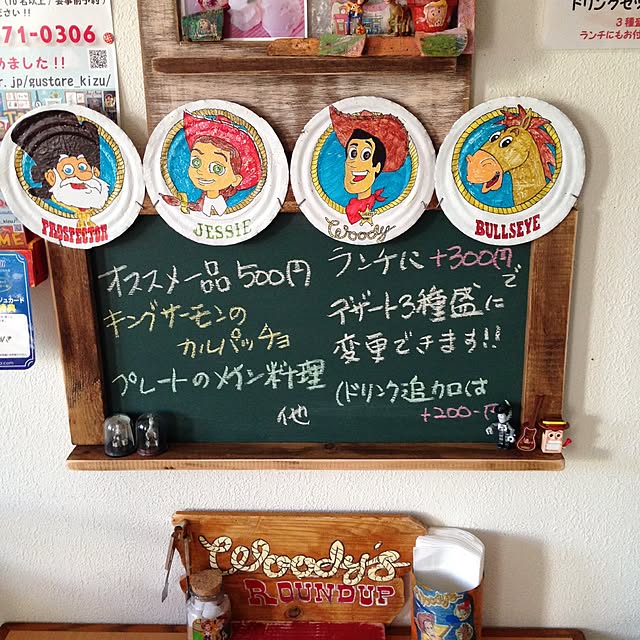 71-0306
めました!!
r.jp/gustare_kizu/
ドリンクセッ
3種盛
ランチにもお付
PROSPECTOR
JESSIE
Woody
BULLSEYE
オススメ一品500円
キングサーモンの
カルパッチョ
プレートのメイン料理
他
ランチに+300円で
デザート3種盛に
変更できます!!
(ドリンク追加は
+200-
Woody's
ROUNDUP